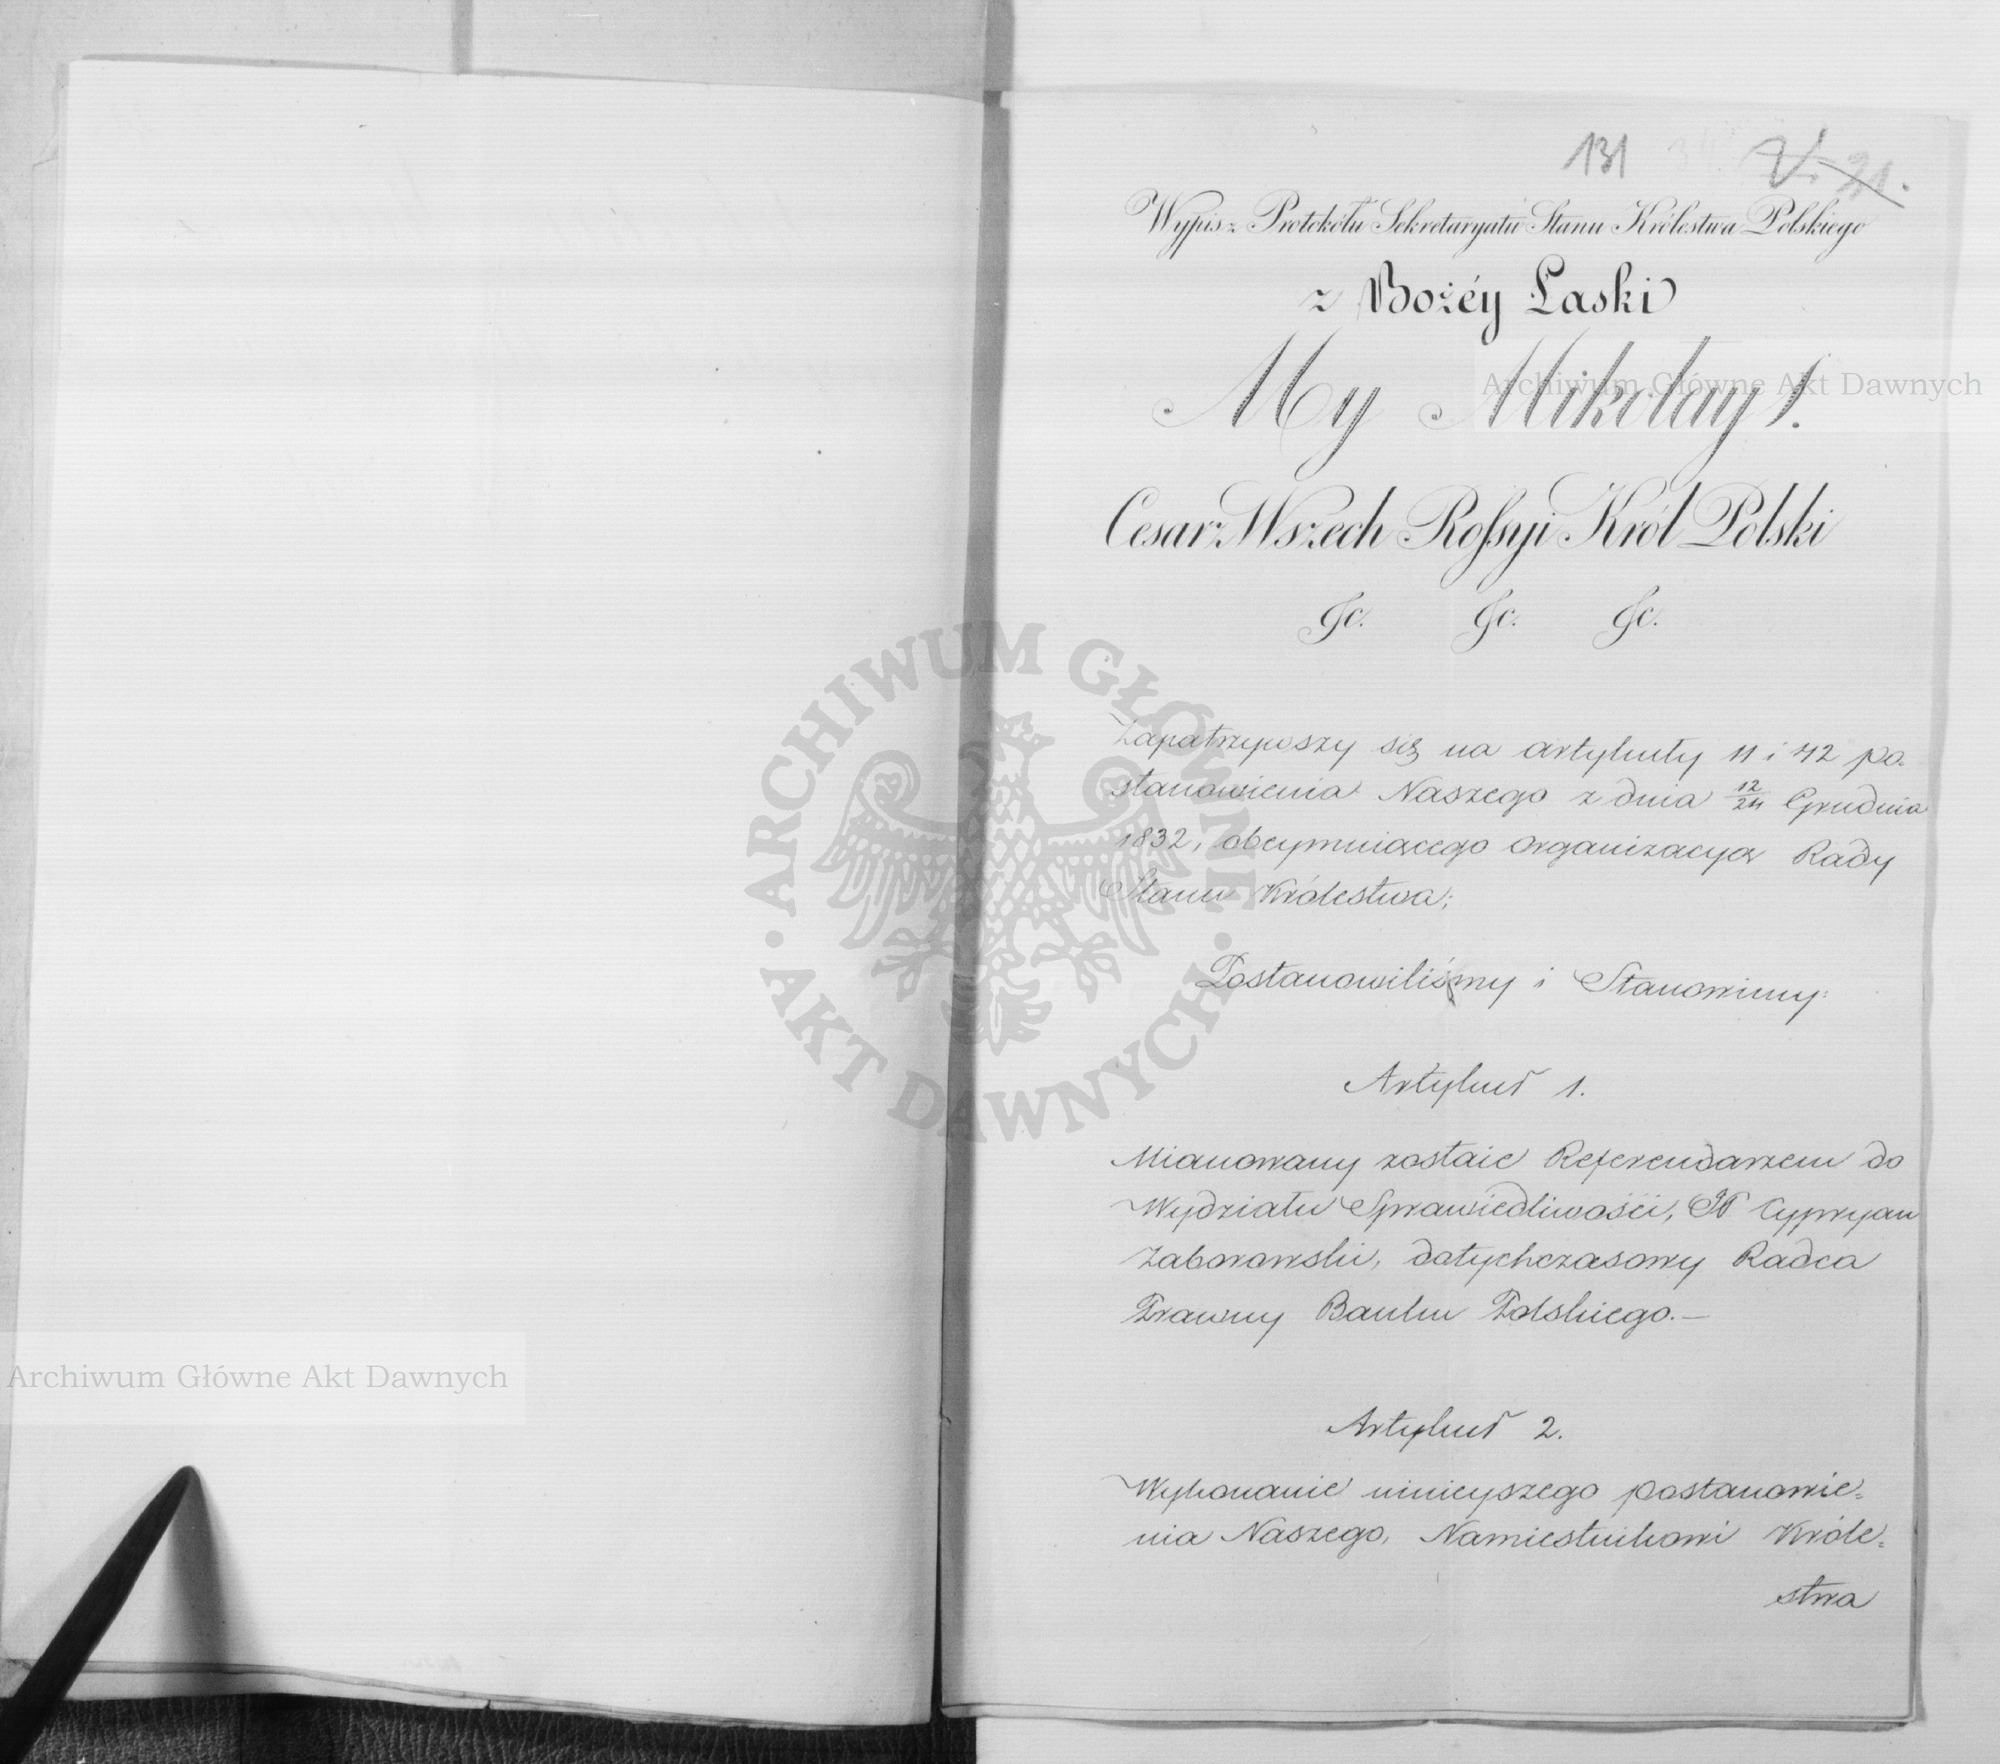 131
21.
Wypis z Protokółu Sekretaryatu Stanu Królestwa Polskiego
z Bożéy Łaski
My Mikołay I.
Cesarz Wszech Rossyi Król Polski
&c. &c. &c.
Zapatrzywszy się na artykuły 11 i 42 po-
stanowienia Naszego z dnia 12/24 Grudnia
1832, obeymuiącego organizacyą Rady
Stanu Królestwa;
Postanowiliśmy i Stanowimy:
Artykuł 1.
Mianowany zostaie Referendarzem do
Wydziału Sprawiedliwości, Cypryan
Zaborowski, dotychczasowy Radca
Prawny Banku Polskiego.—
Artykuł 2.
Wykonanie ninieyszego postanowie=
nia Naszego, Namiestnikowi Króle=
stwa
Archiwum Główne Akt Dawnych
Archiwum Główne Akt Dawnych
· ARCHIWUM GŁÓWNE · AKT DAWNYCH